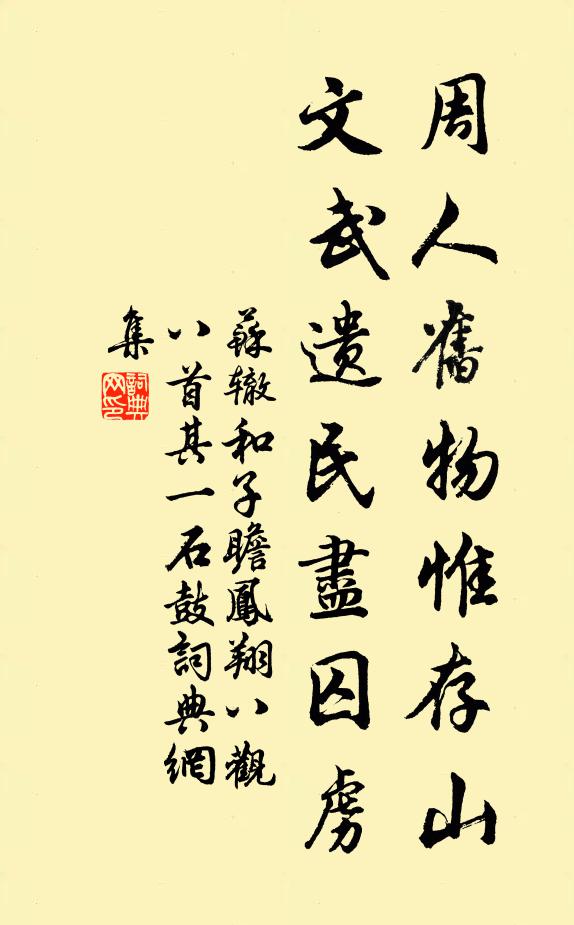 周人舊物惟存山
文武遺民盡囚虜
蘇辙和子瞻鳳翔八觀
八首其一石鼓詞典網
集
詞典
网印